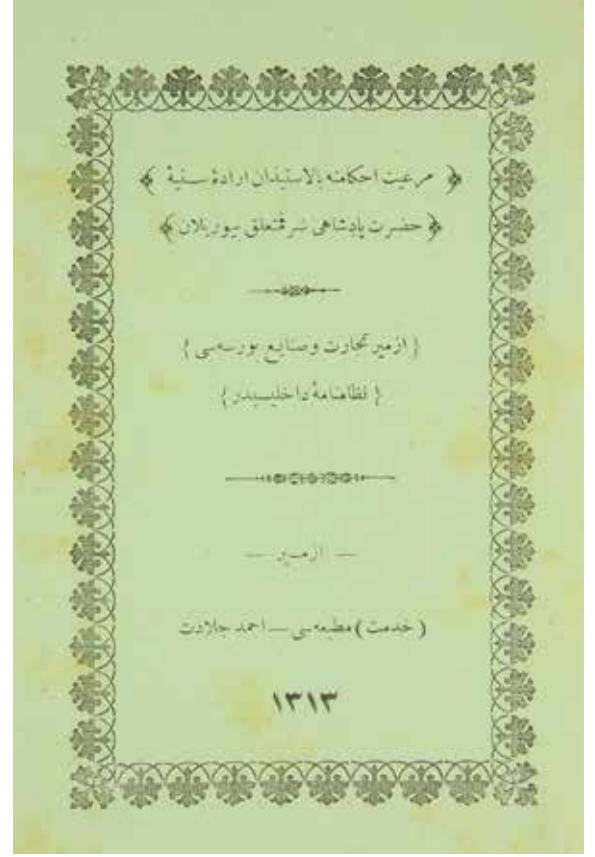 ﴿ مرعيت احكامنه بالاستيذان ارادۀ سنيۀ ﴾
﴿ حضرت پادشاهى شرفتعلق بيوريلان ﴾
{ ازمير تجارت وصنايع بورسه سى }
{ نظامنامۀ داخليسيدر }
— ازمير —
( خدمت ) مطبعه سى — احمد جلادت
١٣١٣